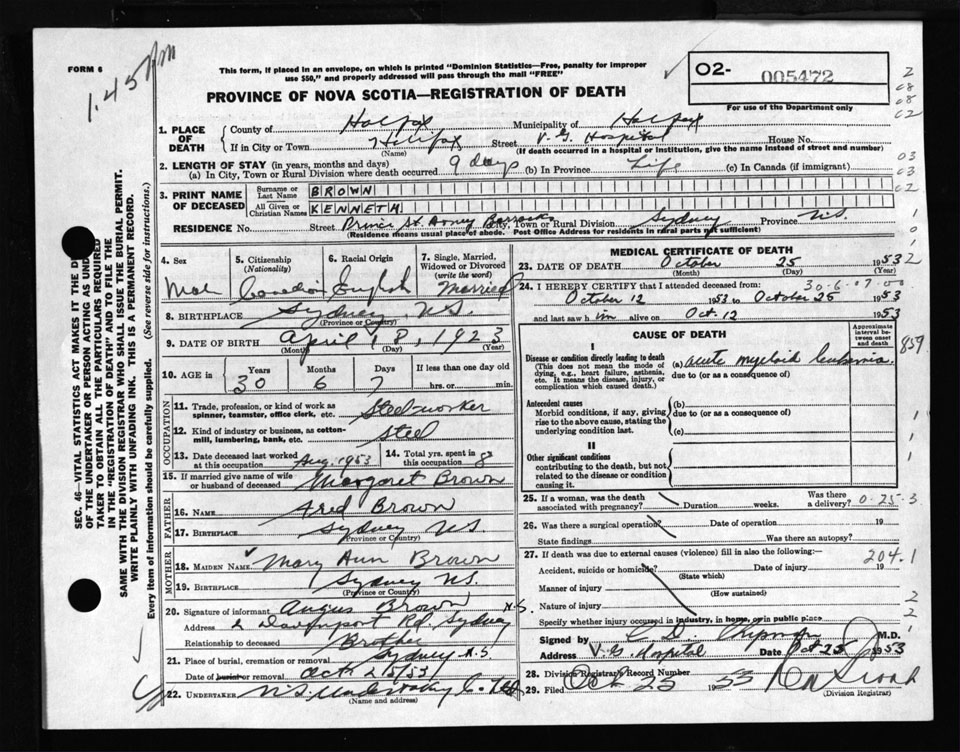 FORM 6
1.45 PM
This form, if placed in an envelope, on which is printed "Dominion Statistics—Free, penalty for improper
use $50," and properly addressed will pass through the mail "FREE"
02- 005472
For use of the Department only
PROVINCE OF NOVA SCOTIA—REGISTRATION OF DEATH
1. PLACE OF DEATH County of Halifax Municipality of Halifax
If in City or Town Halifax Street V. G. Hospital House No.
(Name) (If death occurred in a hospital or institution, give name instead of street and number)
2. LENGTH OF STAY (in years, months and days)
(a) In City, Town or Rural Division where death occurred 9 days (b) In Province Life (c) In Canada (if immigrant)
3. PRINT NAME OF DECEASED Surname or Last Name BROWN
All Given or Christian Names KENNETH
RESIDENCE No. Street Prince St. Barracks City, Town or Rural Division Sydney Province N.S.
(Residence means usual place of abode. Post Office Address for residents in rural parts not sufficient)
4. Sex
5. Citizenship (Nationality)
6. Racial Origin
7. Single, Married, Widowed or Divorced (write the word)
Male Canadian English Married
8. BIRTHPLACE Sydney N.S.
(Province or Country)
9. DATE OF BIRTH April 18, 1923
(Month) (Day) (Year)
10. AGE in Years Months Days If less than one day
30 6 7 hrs. or min.
OCCUPATION
11. Trade, profession, or kind of work as spinner, teamster, office clerk, etc. Steel-worker
12. Kind of industry or business, as cotton-mill, lumbering, bank, etc. Steel
13. Date deceased last worked at this occupation Aug. 1953
14. Total yrs. spent in this occupation 8
15. If married give name of wife or husband of deceased Margaret Brown
FATHER
16. NAME Fred Brown
17. BIRTHPLACE Sydney N.S.
(Province or Country)
MOTHER
18. MAIDEN NAME Mary Ann Brown
19. BIRTHPLACE Sydney N.S.
(Province or Country)
20. Signature of informant Angus Brown
Address Davenport Rd, Sydney N.S.
Relationship to deceased Brother
21. Place of burial, cremation or removal Sydney N.S.
Date of burial or removal Oct 25/53
22. UNDERTAKER N.S. Undertaking Co. Ltd
(Name and address)
MEDICAL CERTIFICATE OF DEATH
23. DATE OF DEATH October 25 1953
(Month) (Day) (Year)
24. I HEREBY CERTIFY that I attended deceased from:
30-6-07-00
October 12 1953 to October 25 1953
and last saw him alive on Oct. 12 1953
CAUSE OF DEATH
Approximate interval between onset and death
I
Disease or condition directly leading to death
(This does not mean the mode of dying, e.g., heart failure, asthenia, etc. It means the disease, injury, or complication which caused death.)
(a) acute myeloid leukemia
due to (or as a consequence of)
859
Antecedent causes
Morbid conditions, if any, giving rise to the above cause, stating the underlying condition last.
(b)
due to (or as a consequence of)
(c)
II
Other significant conditions
contributing to the death, but not related to the disease or condition causing it.
25. If a woman, was the death associated with pregnancy? Duration weeks. Was there a delivery?
0-25-3
26. Was there a surgical operation? Date of operation 19
State findings Was there an autopsy?
27. If death was due to external causes (violence) fill in also the following:—
204.1
Accident, suicide or homicide? Date of injury 19
(State which)
Manner of injury
(How sustained)
Nature of injury
Specify whether injury occurred in industry, in home, or in public place
Signed by C. D. Chipman M.D.
Address V. G. Hospital Date Oct 25 1953
28. Division Registrar's Record Number
29. Filed Oct 25 1953
(Division Registrar)
SEC. 46—VITAL STATISTICS ACT MAKES IT THE
OF THE UNDERTAKER OR PERSON ACTING AS
TAKER TO OBTAIN ALL THE PARTICULARS REQUIRED
IN THE "REGISTRATION OF DEATH" AND TO FILE THE
SAME WITH THE DIVISION REGISTRAR WHO SHALL ISSUE THE BURIAL PERMIT.
WRITE PLAINLY WITH UNFADING INK. THIS IS A PERMANENT RECORD.
Every item of information should be carefully supplied. (See reverse side for instructions.)